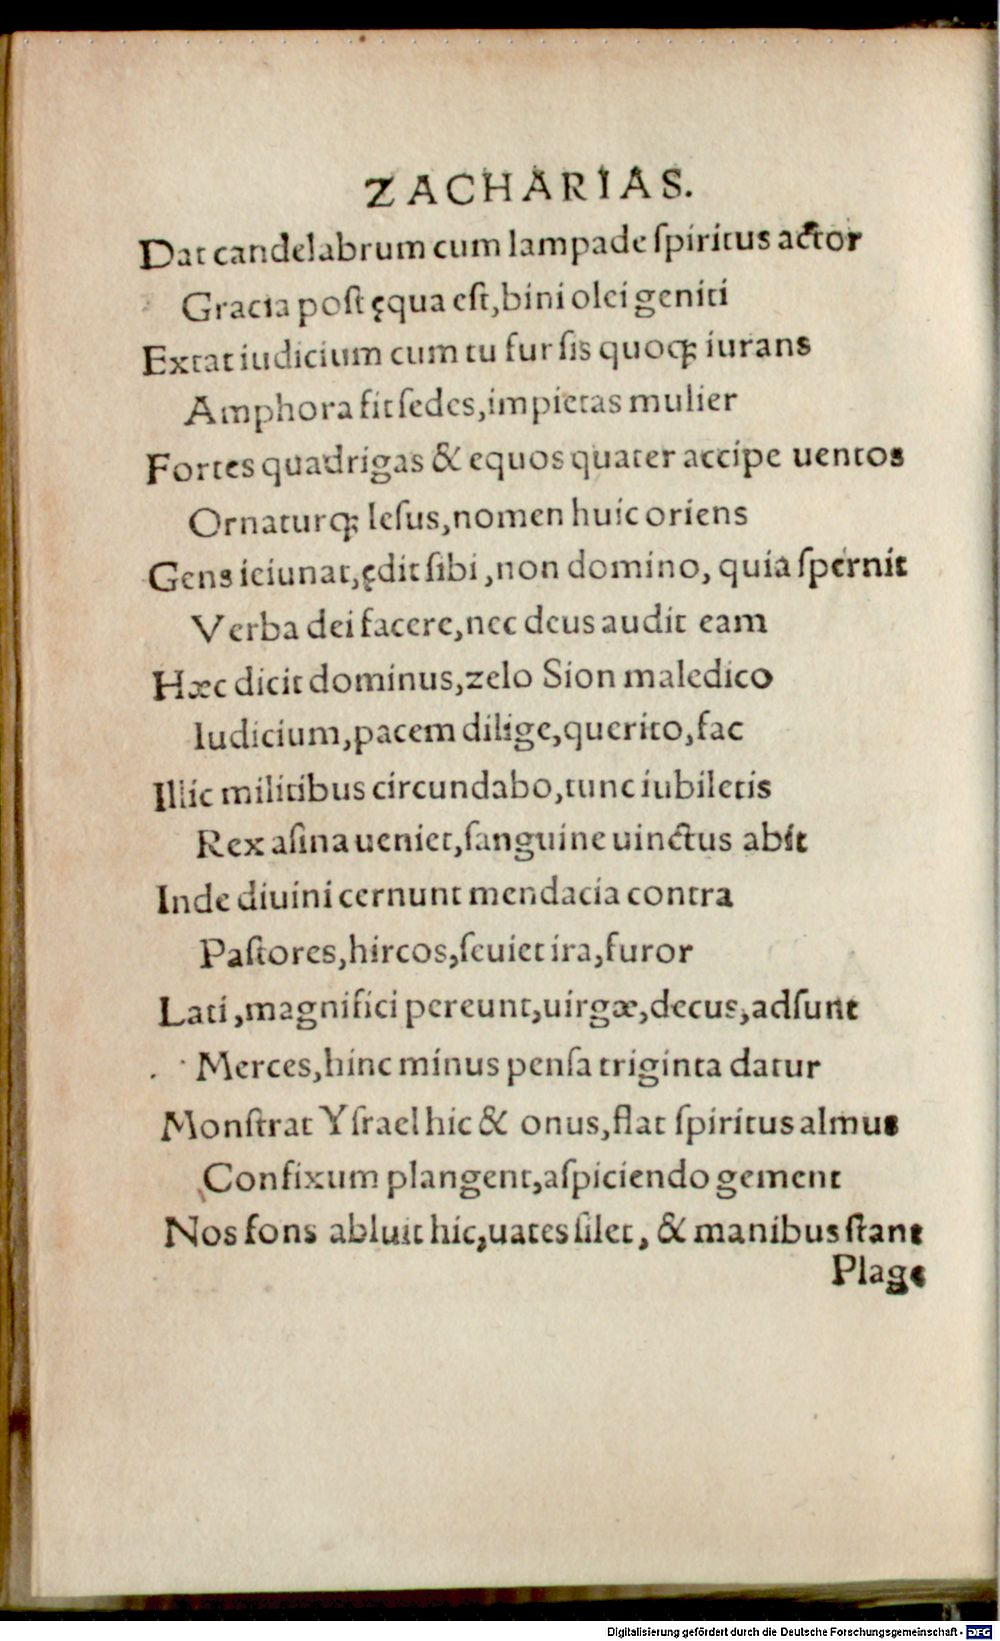 ZACHARIAS.
Dat candelabrum cum lampade ſpiritus actor
Gracia poſt ęqua eſt, bini olei geniti
Extat iudicium cum tu fur ſis quoqꝫ iurans
Amphora fit ſedes, impietas mulier
Fortes quadrigas & equos quater accipe uentos
Ornaturqꝫ Ieſus, nomen huic oriens
Gens ieiunat, ędit ſibi, non domino, quia ſpernit
Verba dei facere, nec deus audit eam
Hæc dicit dominus, zelo Sion maledico
Iudicium, pacem dilige, querito, fac
Illic militibus circundabo, tunc iubiletis
Rex aſina ueniet, ſanguine uinctus abit
Inde diuini cernunt mendacia contra
Paſtores, hircos, ſeuiet ira, furor
Lati, magnifici pereunt, uirgæ, decus, adſunt
Merces, hinc minus penſa triginta datur
Monſtrat Yſrael hic & onus, flat ſpiritus almus
Confixum plangent, aſpiciendo gement
Nos fons abluit hic, uates ſilet, & manibus ſtant
Plagę
Digitalisierung gefördert durch die Deutsche Forschungsgemeinschaft - DFG